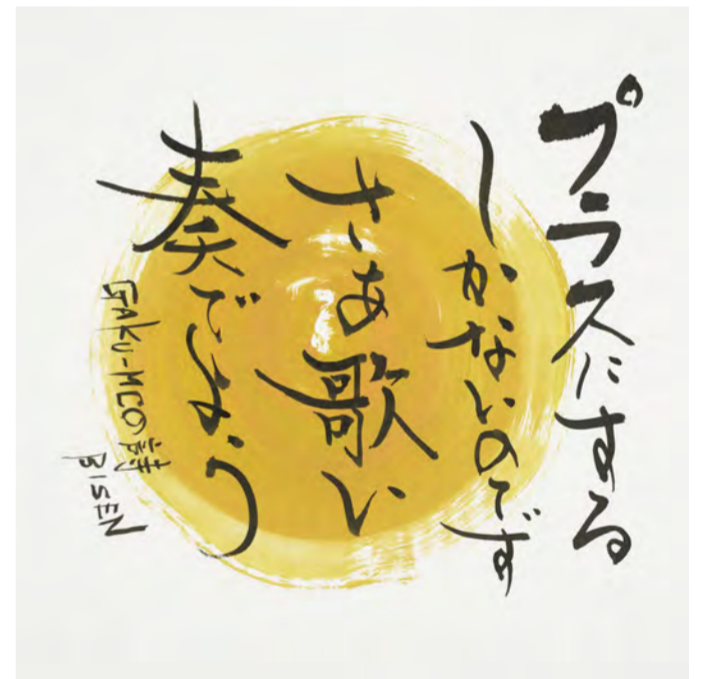 プラスにする
しかないのです
さあ歌い
奏でよう
GAKU-MCの詩
BISEN